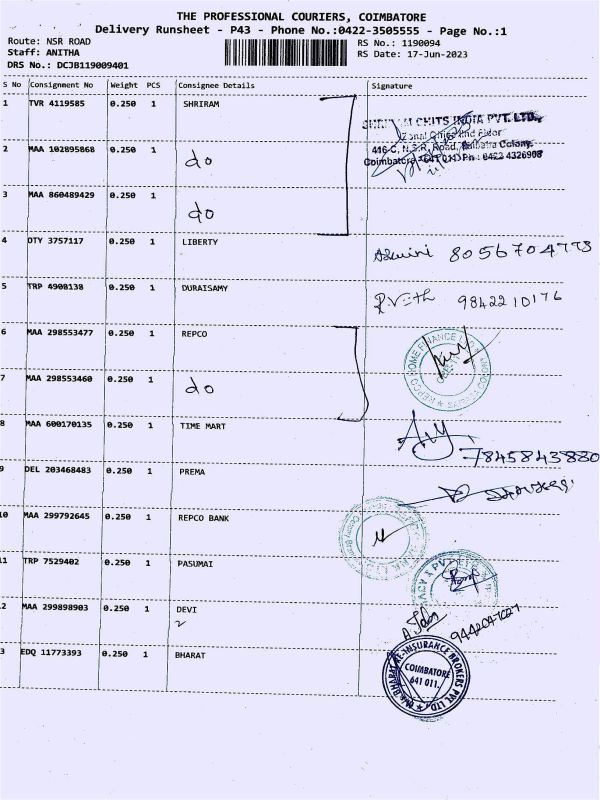 THE PROFESSIONAL COURIERS, COIMBATORE
Delivery Runsheet - P43 - Phone No.:0422-3505555 - Page No.:1
Route: NSR ROAD RS No.: 1190094
Staff: ANITHA RS Date: 17-Jun-2023
DRS No.: DCJB119009401
S No Consignment No Weight PCS Consignee Details Signature
1 TVR 4119585 0.250 1 SHRIRAM
CHITS INDIA PVT. LTD.,
416-C, N.S.R. Road, Saibaba Colony,
Coimbatore - 641 011 Ph : 0422 4326908
2 MAA 102895868 0.250 1 do
3 MAA 860489429 0.250 1 do
4 DTY 3757117 0.250 1 LIBERTY Aswini 8056704773
5 TRP 4908138 0.250 1 DURAISAMY 9842210176
6 MAA 298553477 0.250 1 REPCO
REPCO HOME FINANCE LTD
7 MAA 298553460 0.250 1 do
8 MAA 600170135 0.250 1 TIME MART 7845843880
9 DEL 203468483 0.250 1 PREMA
10 MAA 299792645 0.250 1 REPCO BANK
11 TRP 7529402 0.250 1 PASUMAI
12 MAA 299898903 0.250 1 DEVI
13 EDQ 11773393 0.250 1 BHARAT
BHARAT RE-INSURANCE BROKERS PVT. LTD.
COIMBATORE
641 011.